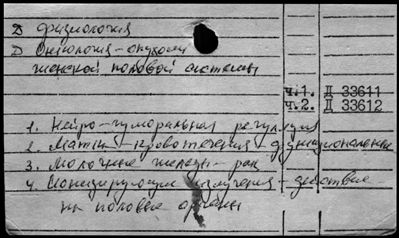 Д физиология
Д Онкология - опухоли
женской половой системы
ч.1. Д 33611
ч.2. Д 33612
1. Нейро-гуморальная регуляция
2. Матка - кровотечения функциональные
3. Молочные железы - рак
4. Ионизирующие излучения - действие
на половые органы